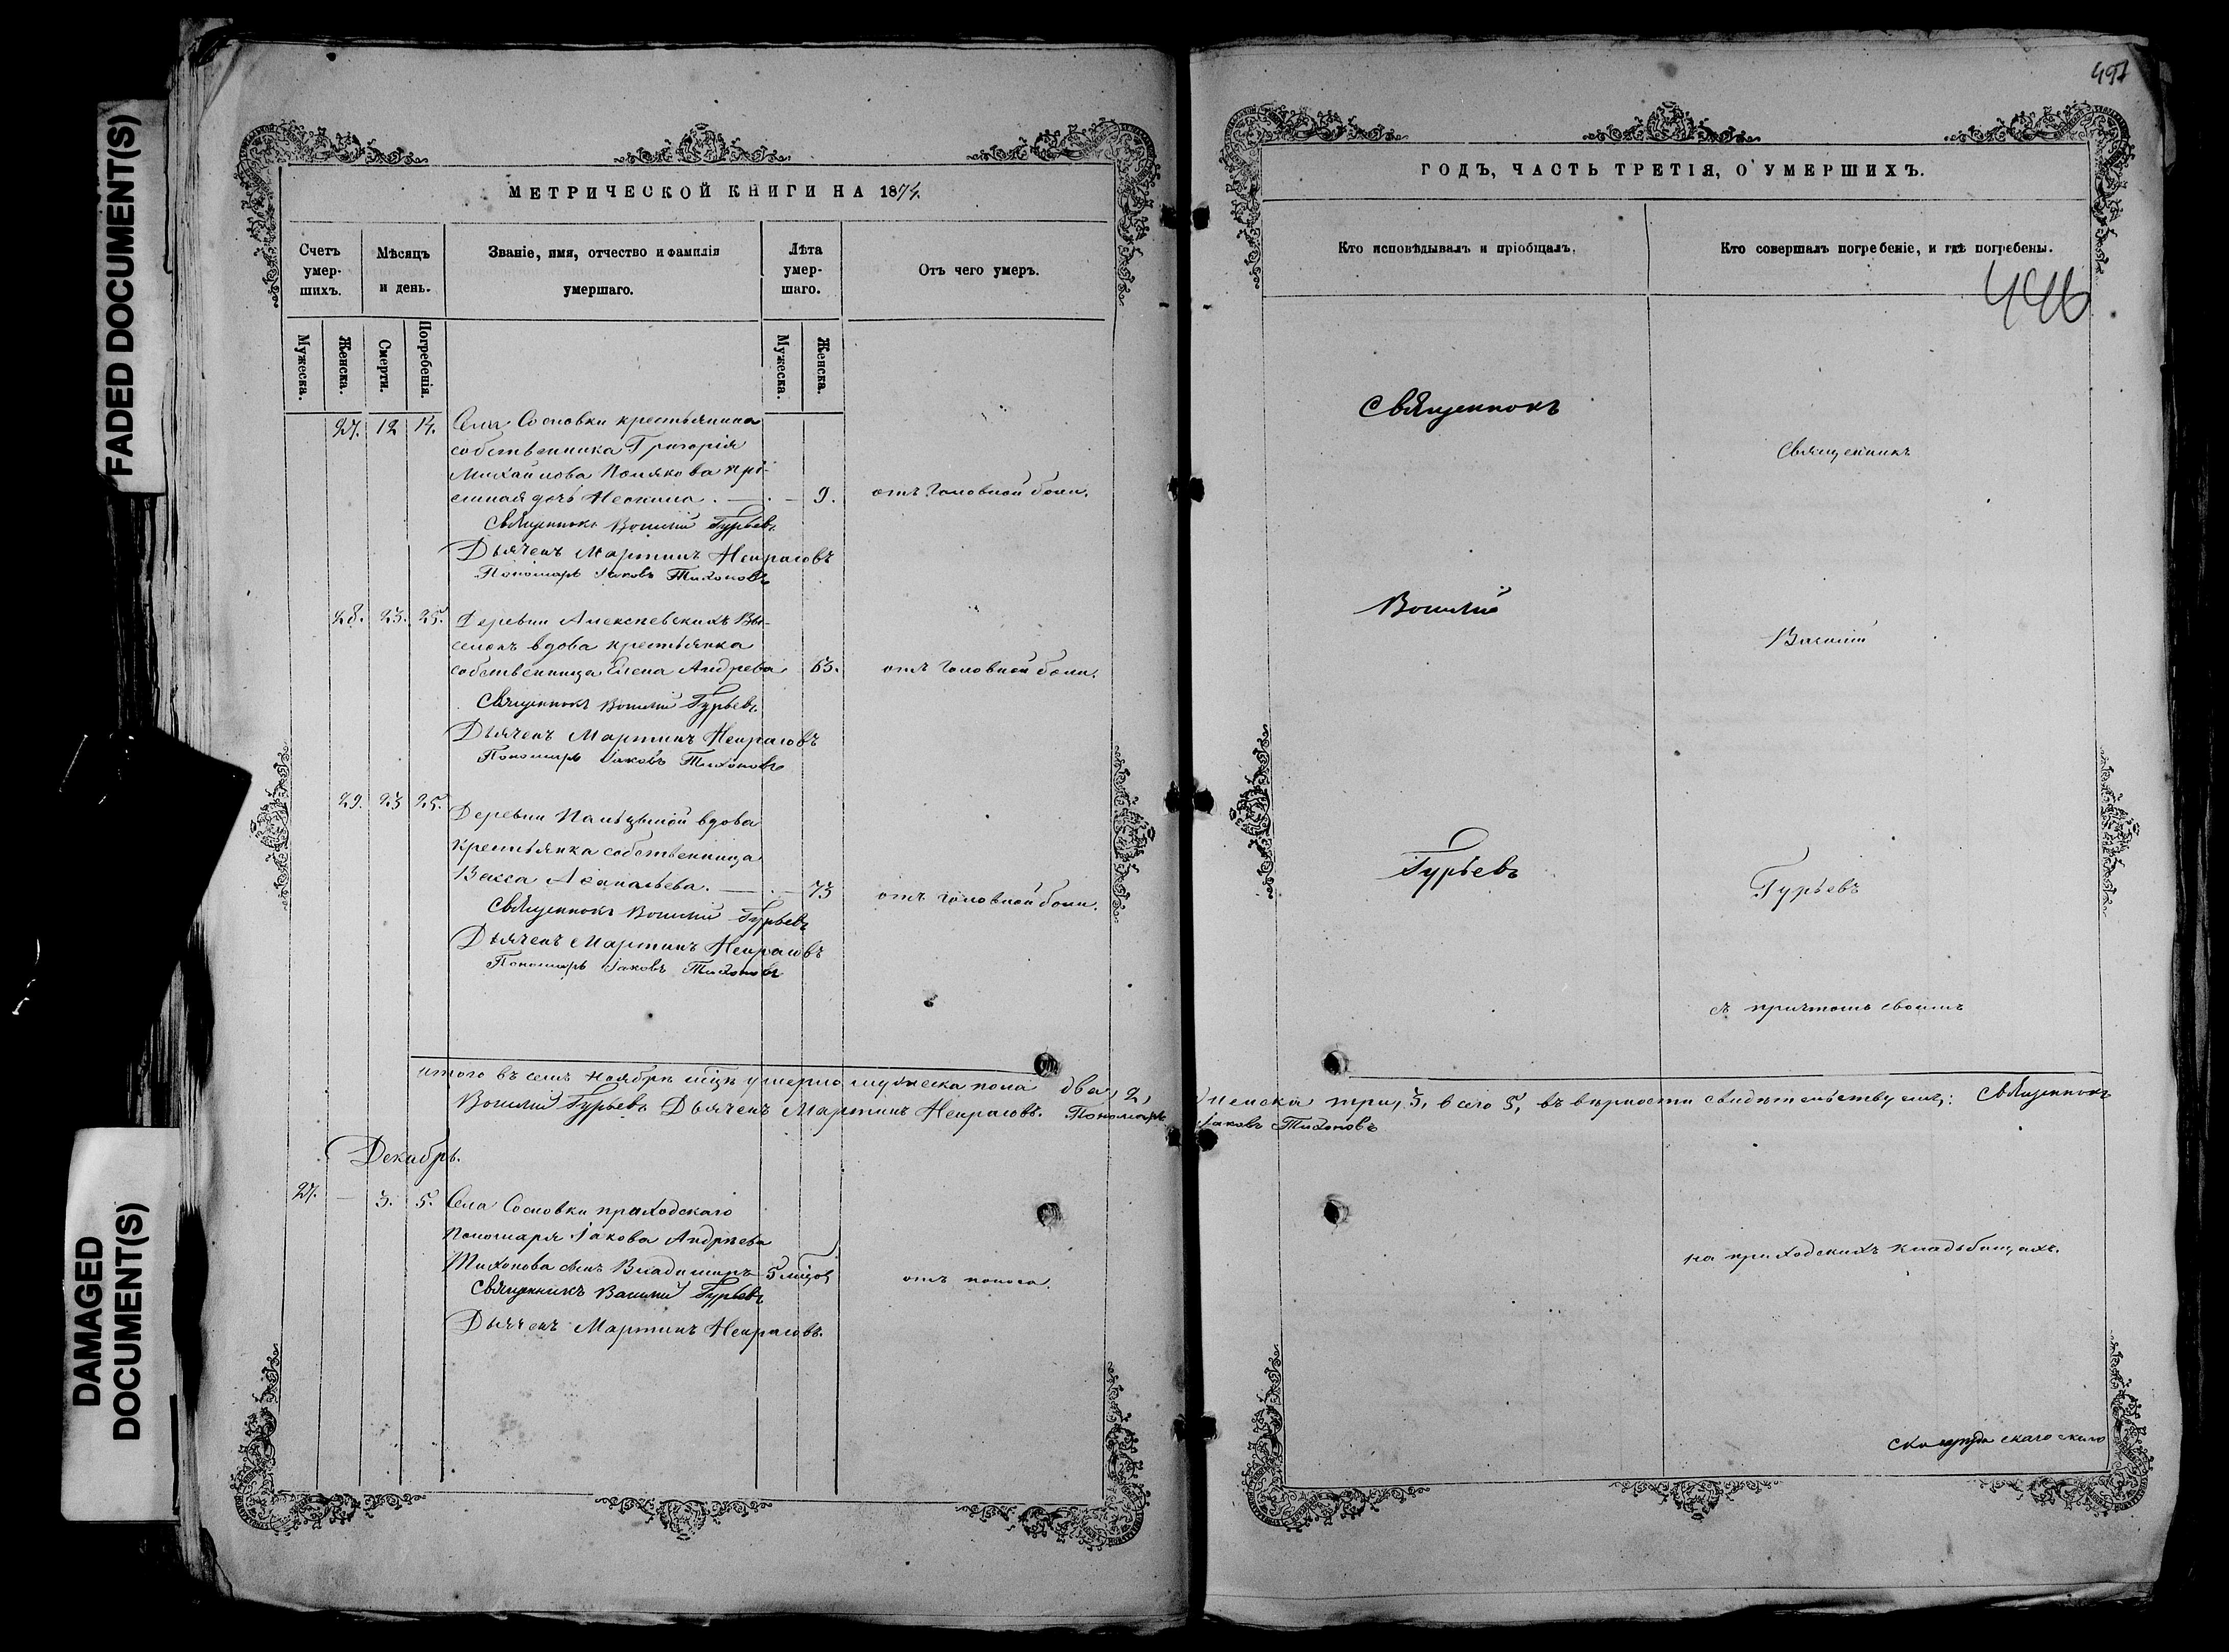 FADED DOCUMENT(S)
DAMAGED
DOCUMENT(S)
МЕТРИЧЕСКОЙ КНИГИ НА 1874.
Счетъ
умер-
шихъ.
Мѣсяцъ
и день.
Званіе, имя, отчество и фамилія
умершаго.
Лѣта
умер-
шаго.
Отъ чего умеръ.
Мужеска.
Женска.
Смерти.
Погребенія.
Мужеска.
Женска.
27. 12 14. Села Сосновки крестьянина
собственника Григорія
Михайлова Полякова прі-
емная дочь Неонила. 9. отъ головной боли.
Священникъ Василій Гурьевъ
Дьячекъ Мартинъ Некрасовъ
Пономарь Іаковъ Тихоновъ
28. 23. 25. Деревни Алексеевскихъ Вы-
селокъ вдова крестьянка
собственница Елена Андреева 63. отъ головной боли.
Священникъ Василій Гурьевъ
Дьячекъ Мартинъ Некрасовъ
Пономарь Іаковъ Тихоновъ
29. 23 25. Деревни Пальцыной вдова
крестьянка собственница
Васса Аѳанасьева. 73 отъ головной боли.
Священникъ Василій Гурьевъ
Дьячекъ Мартинъ Некрасовъ
Пономарь Іаковъ Тихоновъ
итого въ семъ Ноябрѣ мцѣ умерло мужеска пола два, 2,
Василій Гурьевъ Дьячекъ Мартинъ Некрасовъ. Пономарь
Декабрь.
27. — 3. 5. Села Сосновки приходскаго
пономаря Іакова Андреева
Тихонова сынъ Владимиръ 5 мцов отъ поноса.
Священникъ Василій Гурьевъ
Дьячекъ Мартинъ Некрасовъ.
497
ГОДЪ, ЧАСТЬ ТРЕТІЯ, О УМЕРШИХЪ.
Кто исповѣдывалъ и пріобщалъ.
Кто совершалъ погребеніе, и гдѣ погребены.
446
Священникъ
Священникъ
Василій
Василій
Гурьевъ
Гурьевъ
съ причтомъ своимъ
женска три, 3, всего 5, въ вѣрности свидѣтельствуемъ: Священникъ
Іаковъ Тихоновъ
на приходскихъ кладбищахъ.